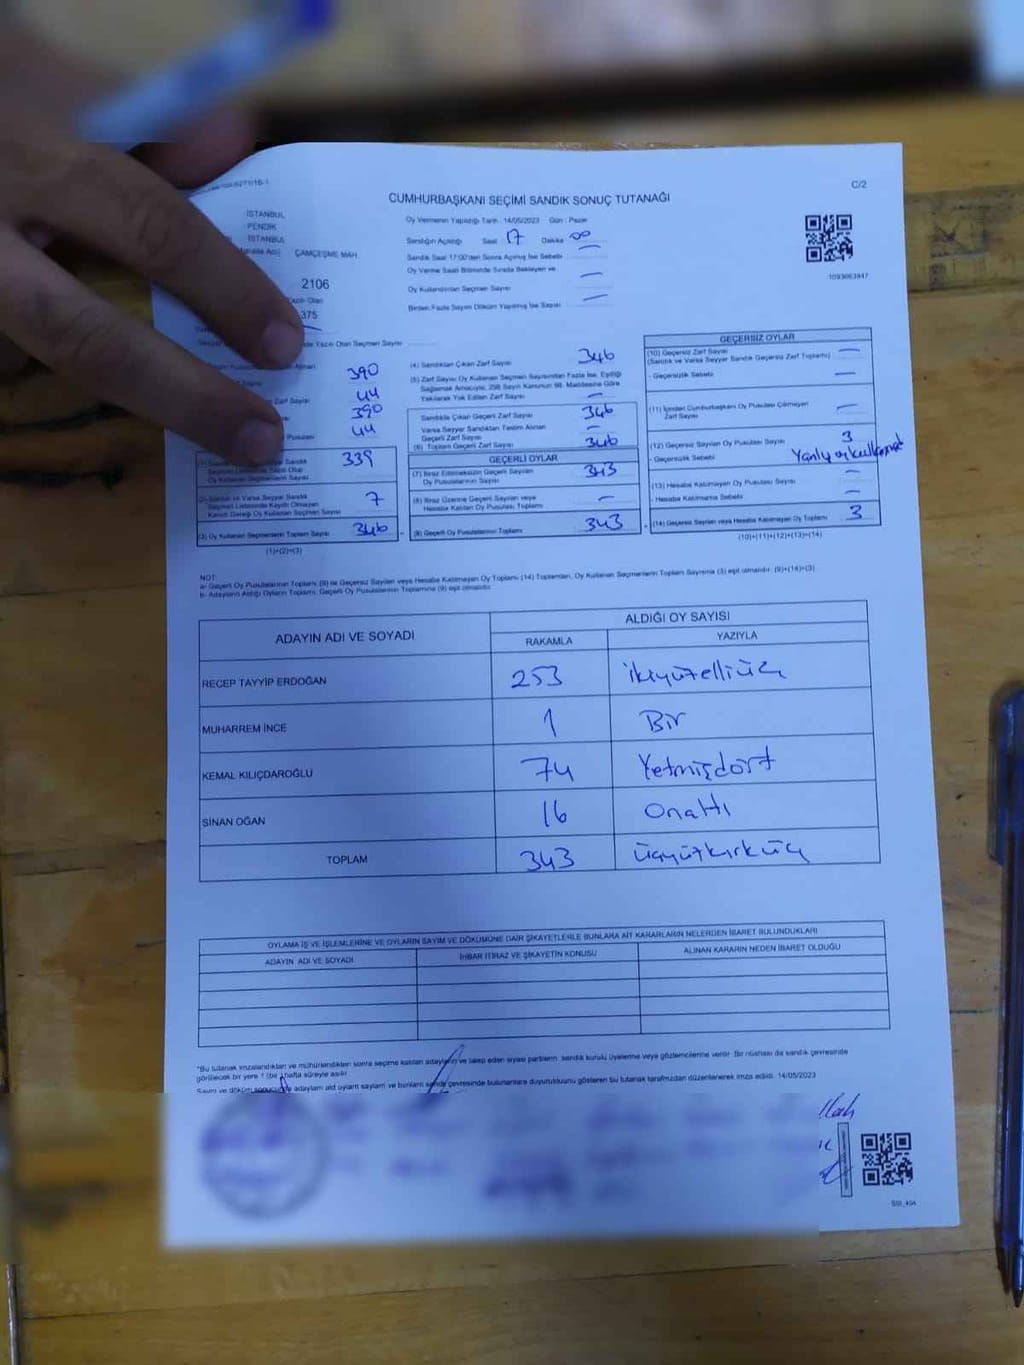 C/2
CUMHURBAŞKANI SEÇİMİ SANDIK SONUÇ TUTANAĞI
İSTANBUL
PENDİK
İSTANBUL
ÇAMÇEŞME MAH.
2106
375
Oy Vermenin Yapıldığı Tarih : 14/05/2023 Gün : Pazar
Sandığın Açıldığı Saat 17 Dakika 00
Sandık Saat 17:00'den Sonra Açılmış İse Sebebi
Oy Verme Saati Bitiminde Sırada Bekleyen ve
Oy Kullandırılan Seçmen Sayısı
Birden Fazla Sayım Döküm Yapılmış İse Sayısı
1093663947
Yazılı Olan Seçmen Sayısı
390
44
390
44
339
7
(3) Oy Kullanan Seçmenlerin Toplam Sayısı 346
(1)+(2)=(3)
(4) Sandıktan Çıkan Zarf Sayısı 346
(5) Zarf Sayısı Oy Kullanan Seçmen Sayısından Fazla İse, Eşitliği
Sağlamak Amacıyla, 298 Sayılı Kanunun 98. Maddesine Göre
Yakılarak Yok Edilen Zarf Sayısı
Sandıkta Çıkan Geçerli Zarf Sayısı 346
Varsa Seyyar Sandıktan Teslim Alınan
Geçerli Zarf Sayısı
(6) Toplam Geçerli Zarf Sayısı 346
GEÇERLİ OYLAR
(7) İtiraz Edilmeksizin Geçerli Sayılan
Oy Pusulalarının Sayısı 343
(8) İtiraz Üzerine Geçerli Sayılan veya
Hesaba Katılan Oy Pusulası Toplamı
(9) Geçerli Oy Pusulalarının Toplamı 343
GEÇERSİZ OYLAR
(10) Geçersiz Zarf Sayısı
(Sandık ve Varsa Seyyar Sandık Geçersiz Zarf Toplamı)
- Geçersizlik Sebebi
(11) İçinden Cumhurbaşkanı Oy Pusulası Çıkmayan
Zarf Sayısı
(12) Geçersiz Sayılan Oy Pusulası Sayısı 3
- Geçersizlik Sebebi
(13) Hesaba Katılmayan Oy Pusulası Sayısı
- Hesaba Katılmama Sebebi
(14) Geçersiz Sayılan veya Hesaba Katılmayan Oy Toplamı 3
(10)+(11)+(12)+(13)=(14)
NOT:
a- Geçerli Oy Pusulalarının Toplamı (9) ile Geçersiz Sayılan veya Hesaba Katılmayan Oy Toplamı (14) Toplamları, Oy Kullanan Seçmenlerin Toplam Sayısına (3) eşit olmalıdır. (9)+(14)=(3)
b- Adayların Aldığı Oyların Toplamı, Geçerli Oy Pusulalarının Toplamına (9) eşit olmalıdır.
ADAYIN ADI VE SOYADI ALDIĞI OY SAYISI
RAKAMLA YAZIYLA
RECEP TAYYİP ERDOĞAN 253 ikiyüzelliüç
MUHARREM İNCE 1 Bir
KEMAL KILIÇDAROĞLU 74 Yetmişdört
SİNAN OĞAN 16 Onaltı
TOPLAM 343 üçyüzkırküç
OYLAMA İŞ VE İŞLEMLERİNE VE OYLARIN SAYIM VE DÖKÜMÜNE DAİR ŞİKAYETLERLE BUNLARA AİT KARARLARIN NELERDEN İBARET BULUNDUKLARI
ADAYIN ADI VE SOYADI İHBAR İTİRAZ VE ŞİKAYETİN KONUSU ALINAN KARARIN NEDEN İBARET OLDUĞU
*Bu tutanak imzalandıktan ve mühürlendikten sonra seçime katılan adayların ve talep eden siyasi partilerin sandık kurulu üyelerine veya gözlemcilerine verilir. Bir nüshası da sandık çevresinde
görülecek bir yere 1 (bir) hafta süreyle asılır.
Sayım ve döküm sonucunda adayların ald oyların sayısını ve bunların sandık çevresinde bulunanlara duyurulduğunu gösteren bu tutanak tarafımızdan düzenlenerek imza edildi. 14/05/2023